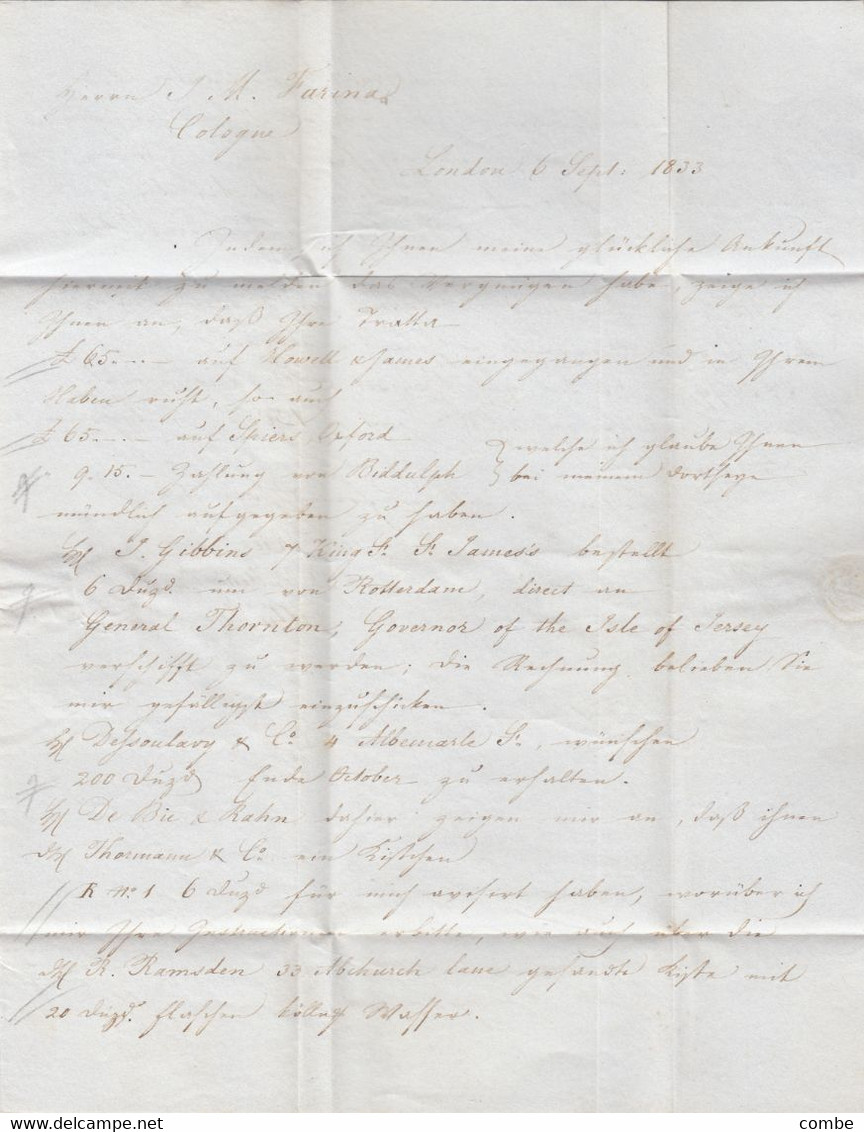 Herrn J. M. Farina
Cologne
London 6 Sept: 1833
Indem ich Ihnen meine glückliche Ankunft
hiermit zu melden das Vergnügen habe, zeige ich
Ihnen an, daß Ihre Tratta
£ 65.-.- auf Howell & James eingegangen und in Ihrem
Haben ruht, so auch
£ 65.-.- auf Spiers Oxford
9. 15.- Zahlung von Biddulph } welche ich glaube Ihnen
bei meinem dortseyn
mündlich aufgegeben zu haben.
J. Gibbins 7 King St. St. James's bestellt
6 Duzd. um von Rotterdam, direct an
General Thornton, Governor of the Isle of Jersey
verschifft zu werden; die Rechnung belieben Sie
mir gefälligst einzuschicken.
Dessoulavy & Co. 4 Albemarle St., wünschen
200 Duzd Ende October zu erhalten.
De Bie & Rahn dahier zeigen mir an, daß ihnen
Thormann & Co. ein Kistchen
R No. 1 6 Duzd für mich avisirt haben, worüber ich
mir Ihre Instructionen erbitte, wie auch über die
R. Ramsden 33 Abchurch lane gesandte Kiste mit
20 Duzd. flaschen kölln. Wasser.
combe